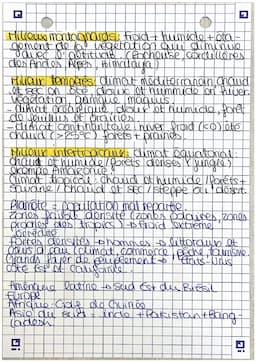 Milieux montagnards: froid + humide + éta-
gement de la végétation qui diminue
avec l'altitude (Rocheuses, cordillères
des Andes, Alpes, Himalaya)
Milieux tempérés: climat méditerranéen chaud
et sec en été, doux et humide en hiver
végétation garrigue maquis
- climat océanique doux et humide, forêt
de feuillus et prairies.
- climat continental: hiver froid (<0) été
chaud (>25°C) forêts + prairies.
Milieu intertropicaux: climat équatorial
chaud et humide/forêts denses (jungle)
exemple Amazonie.
climat tropical: chaud et humide/forêts +
savane/chaud et sec/steppe ou désert.
Planète = population mal répartie
zones faible densité (zones polaires, zones
proches des tropics) → froid extrême
sécheresse
fortes densités → hommes → littoraux et
cours d'eau (climat, commerce, pêche, tourisme
Grands foyer de peuplement → États-Unis
côte Est et Californie.
Amérique latine → Sud Est du Brésil
Europe
Afrique - Golfe de Guinée
Asie du Sud = inde + Pakistan + Bang-
ladesh